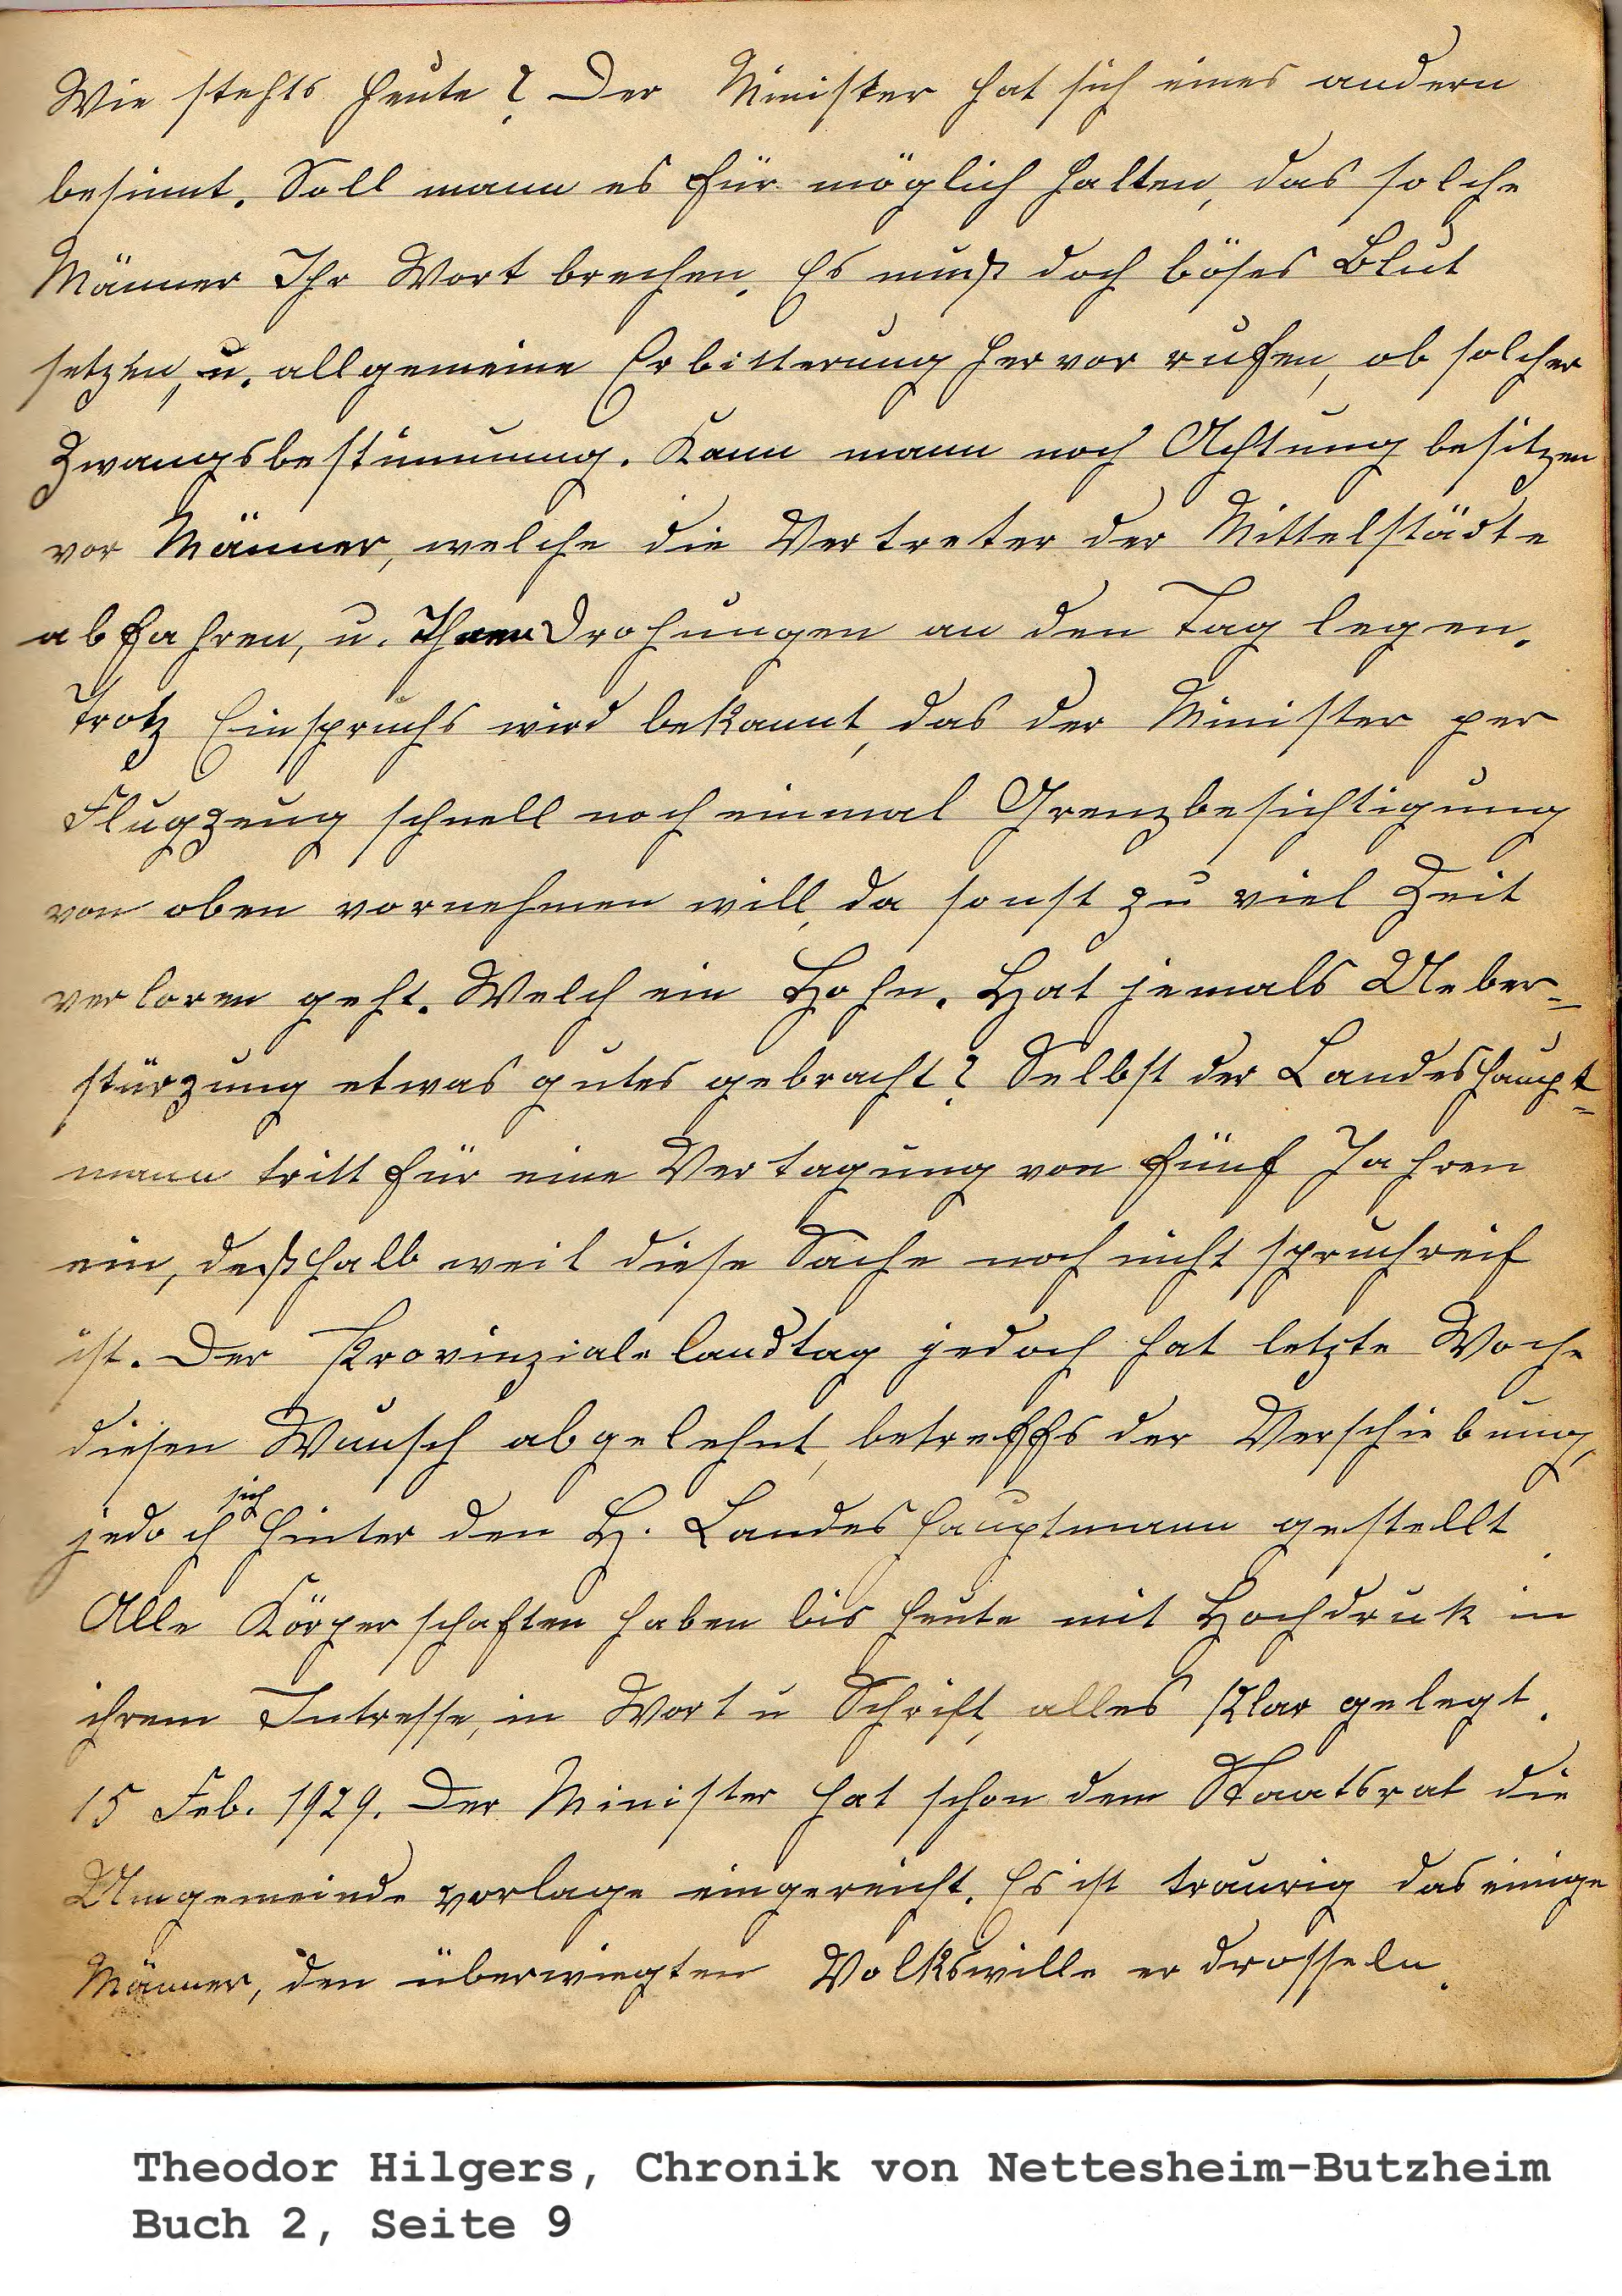 Wie stehts heute? Der Minister hat sich eines andern
besinnt. Soll mann es für möglich halten, das solche
Männer Ihr Wort brechen. Es muß doch böses Blut
setzen, u. allgemeine Erbitterung hervor rufen, ob solcher
Zwangsbestimmung. Kann mann noch Achtung besitzen
vor Männer, welche die Vertreter der Mittelstädte
abfahren, u. Drohungen an den Tag legen.
Trotz Einspruchs wird bekannt, das der Minister per
Flugzeug schnell noch einmal Grenzbesichtigung
von oben vornehmen will, da sonst zu viel Zeit
verloren geht. Welch ein Hohn. Hat jemals Ueber=
stürzung etwas gutes gebracht? Selbst der Landeshaupt=
mann tritt für eine Vertagung von fünf Jahren
ein, deßhalb weil diese Sache noch nicht spruchreif
ist. Der Provinzial-landtag jedoch hat letzte Woche
diesen Wunsch abgelehnt, betreffs der Verschiebung,
jedoch sich hinter den H. Landeshauptmann gestellt.
Alle Körperschaften haben bis heute mit Hochdruk in
ihrem Intresse, in Wort u Schrift, alles klar gelegt.
15 Feb. 1929. Der Minister hat schon dem Staatsrat die
Umgemeinde vorlage eingereicht. Es ist traurig das einige
Männer, den überwiegten Volkswille erdrosseln.
Theodor Hilgers, Chronik von Nettesheim-Butzheim
Buch 2, Seite 9